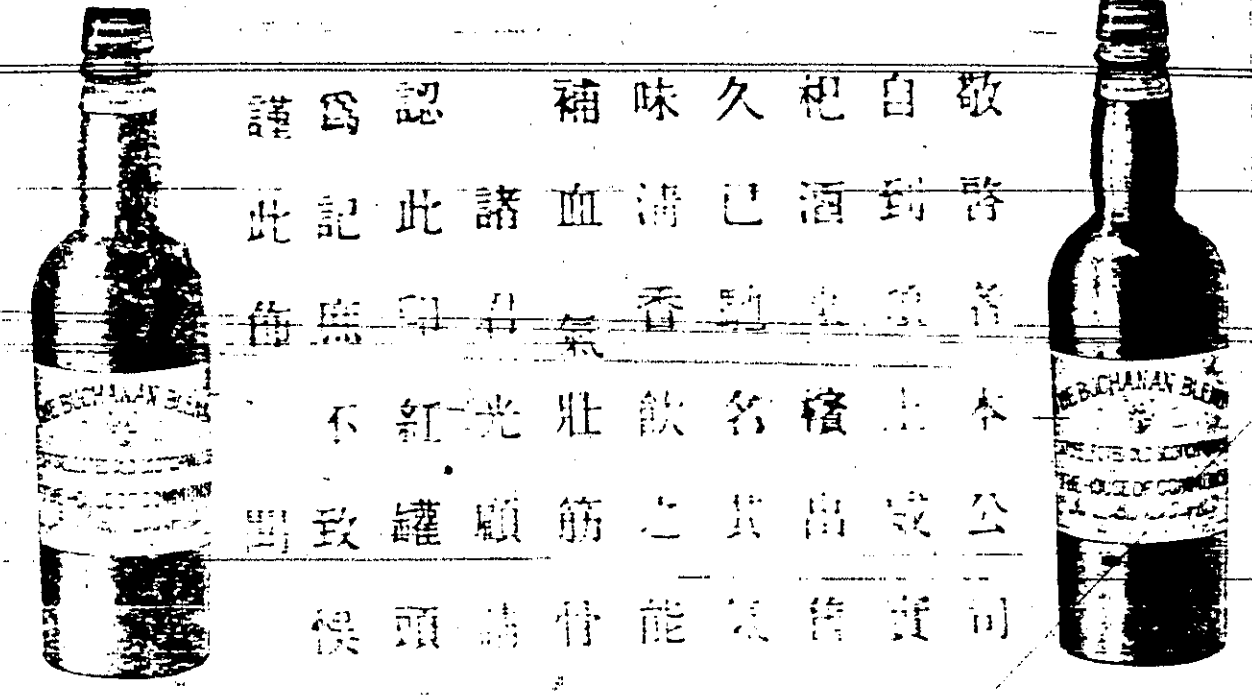 敬啓者本公司
自到頂上威實
杞酒發出售
久已馳名其
味清香飲之能
補血氣壯筋骨
諸君光顧請
認此印紅罐頭
爲記庶不致悞
謹此佈聞
THE BUCHANAN BLEND
THE HOUSE OF COMMONS
THE BUCHANAN BLEND
THE HOUSE OF COMMONS